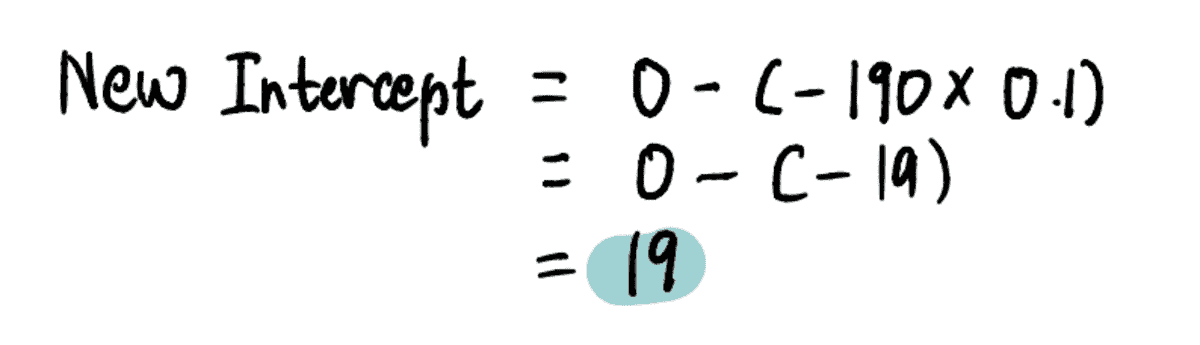 New Intercept = 0 - (-190 × 0.1)
= 0 - (-19)
= 19